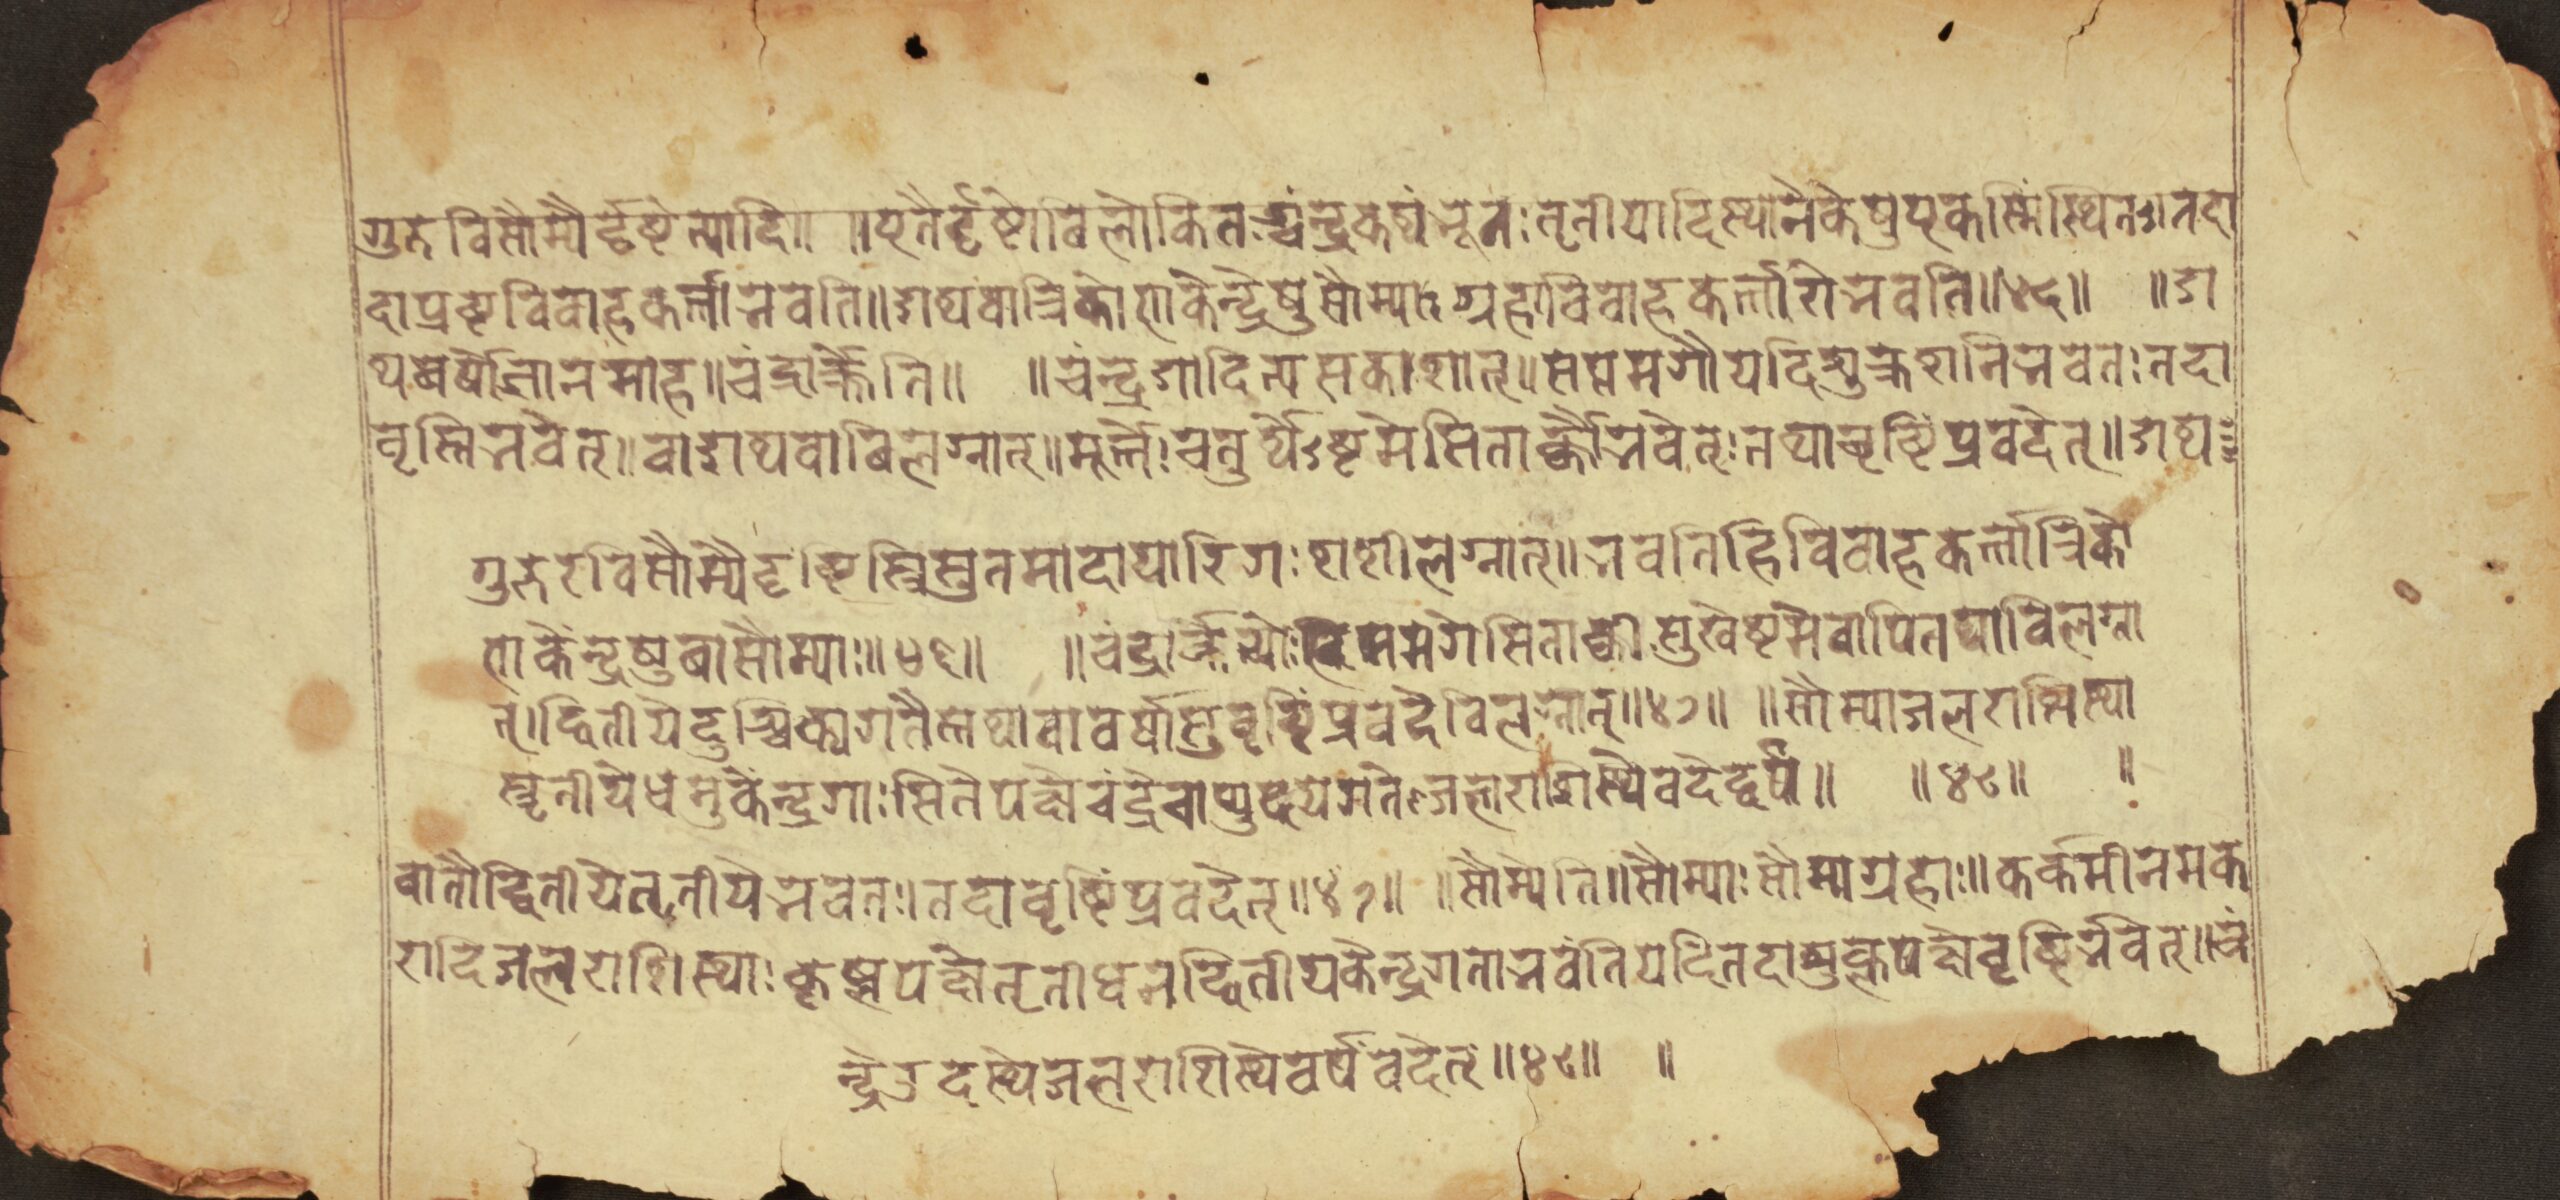 गुरुविसौम्यैर्दृष्टेत्यादि॥ ॥एतैर्दृष्टोविलोकितःचंन्द्रकथंभूतःतृतीयादिस्थानैकेषुएकस्मिंस्थितः॥तदा
दाप्रष्टृविवाहकर्त्ताभवति॥अथवात्रिकोणकेन्द्रेषुसौम्याःग्रहाविवाहकर्त्तारोभवति॥४६॥ ॥अ
थवर्षाज्ञानमाह॥चंद्रार्कैति॥ ॥चंन्द्रगादित्यसकाशात्॥सप्तमगौयदिशुक्रशनिभवेतः॥तदा
वृस्तिभवेत्॥वाअथवाविलग्नात्॥मूर्त्तेःचतुर्थेऽष्टमेसितार्कौभवेत्ःतथावृष्टिंप्रवदेत्॥अथ
गुरुरविसौम्यैदृष्टिस्त्रिसुतमादायारिगःशशीलग्नात्॥भवतिहिविवाहकर्त्तात्रिको
णकेंन्द्रषुवासौम्याः॥४६॥ ॥चंद्रार्क सप्तमगेसितार्की सुखेष्टमेवापितथाविलग्ना
त्॥द्वितीयेदुश्चिक्यगतैस्तथावावर्षासुवृष्टिंप्रवदेविलग्नात्॥४७॥ ॥सौम्याजलराशिस्था
स्तृतीयेधनुकेन्द्रगाःसितेपक्षेचंद्रेवाप्युदयेगतेजलराशिस्थेवदेद्वर्षं॥ ॥४८॥ ॥
वातौद्वितीयेतृतीयेभवतः॥तदावृष्टिंप्रवदेत्॥४७॥ ॥सौम्येति॥सौम्याःसौम्यग्रहाः॥कर्कमीनमक
रादिजलराशिस्थाःकृष्णपक्षेतृतीधनद्वितीयकेन्द्रगताभवंतियदितदाशुक्लपक्षेवृष्टिर्भवेत्॥चं
न्द्रेउदस्थेजलराशिस्थेवर्षंवदेत्॥४८॥ ॥